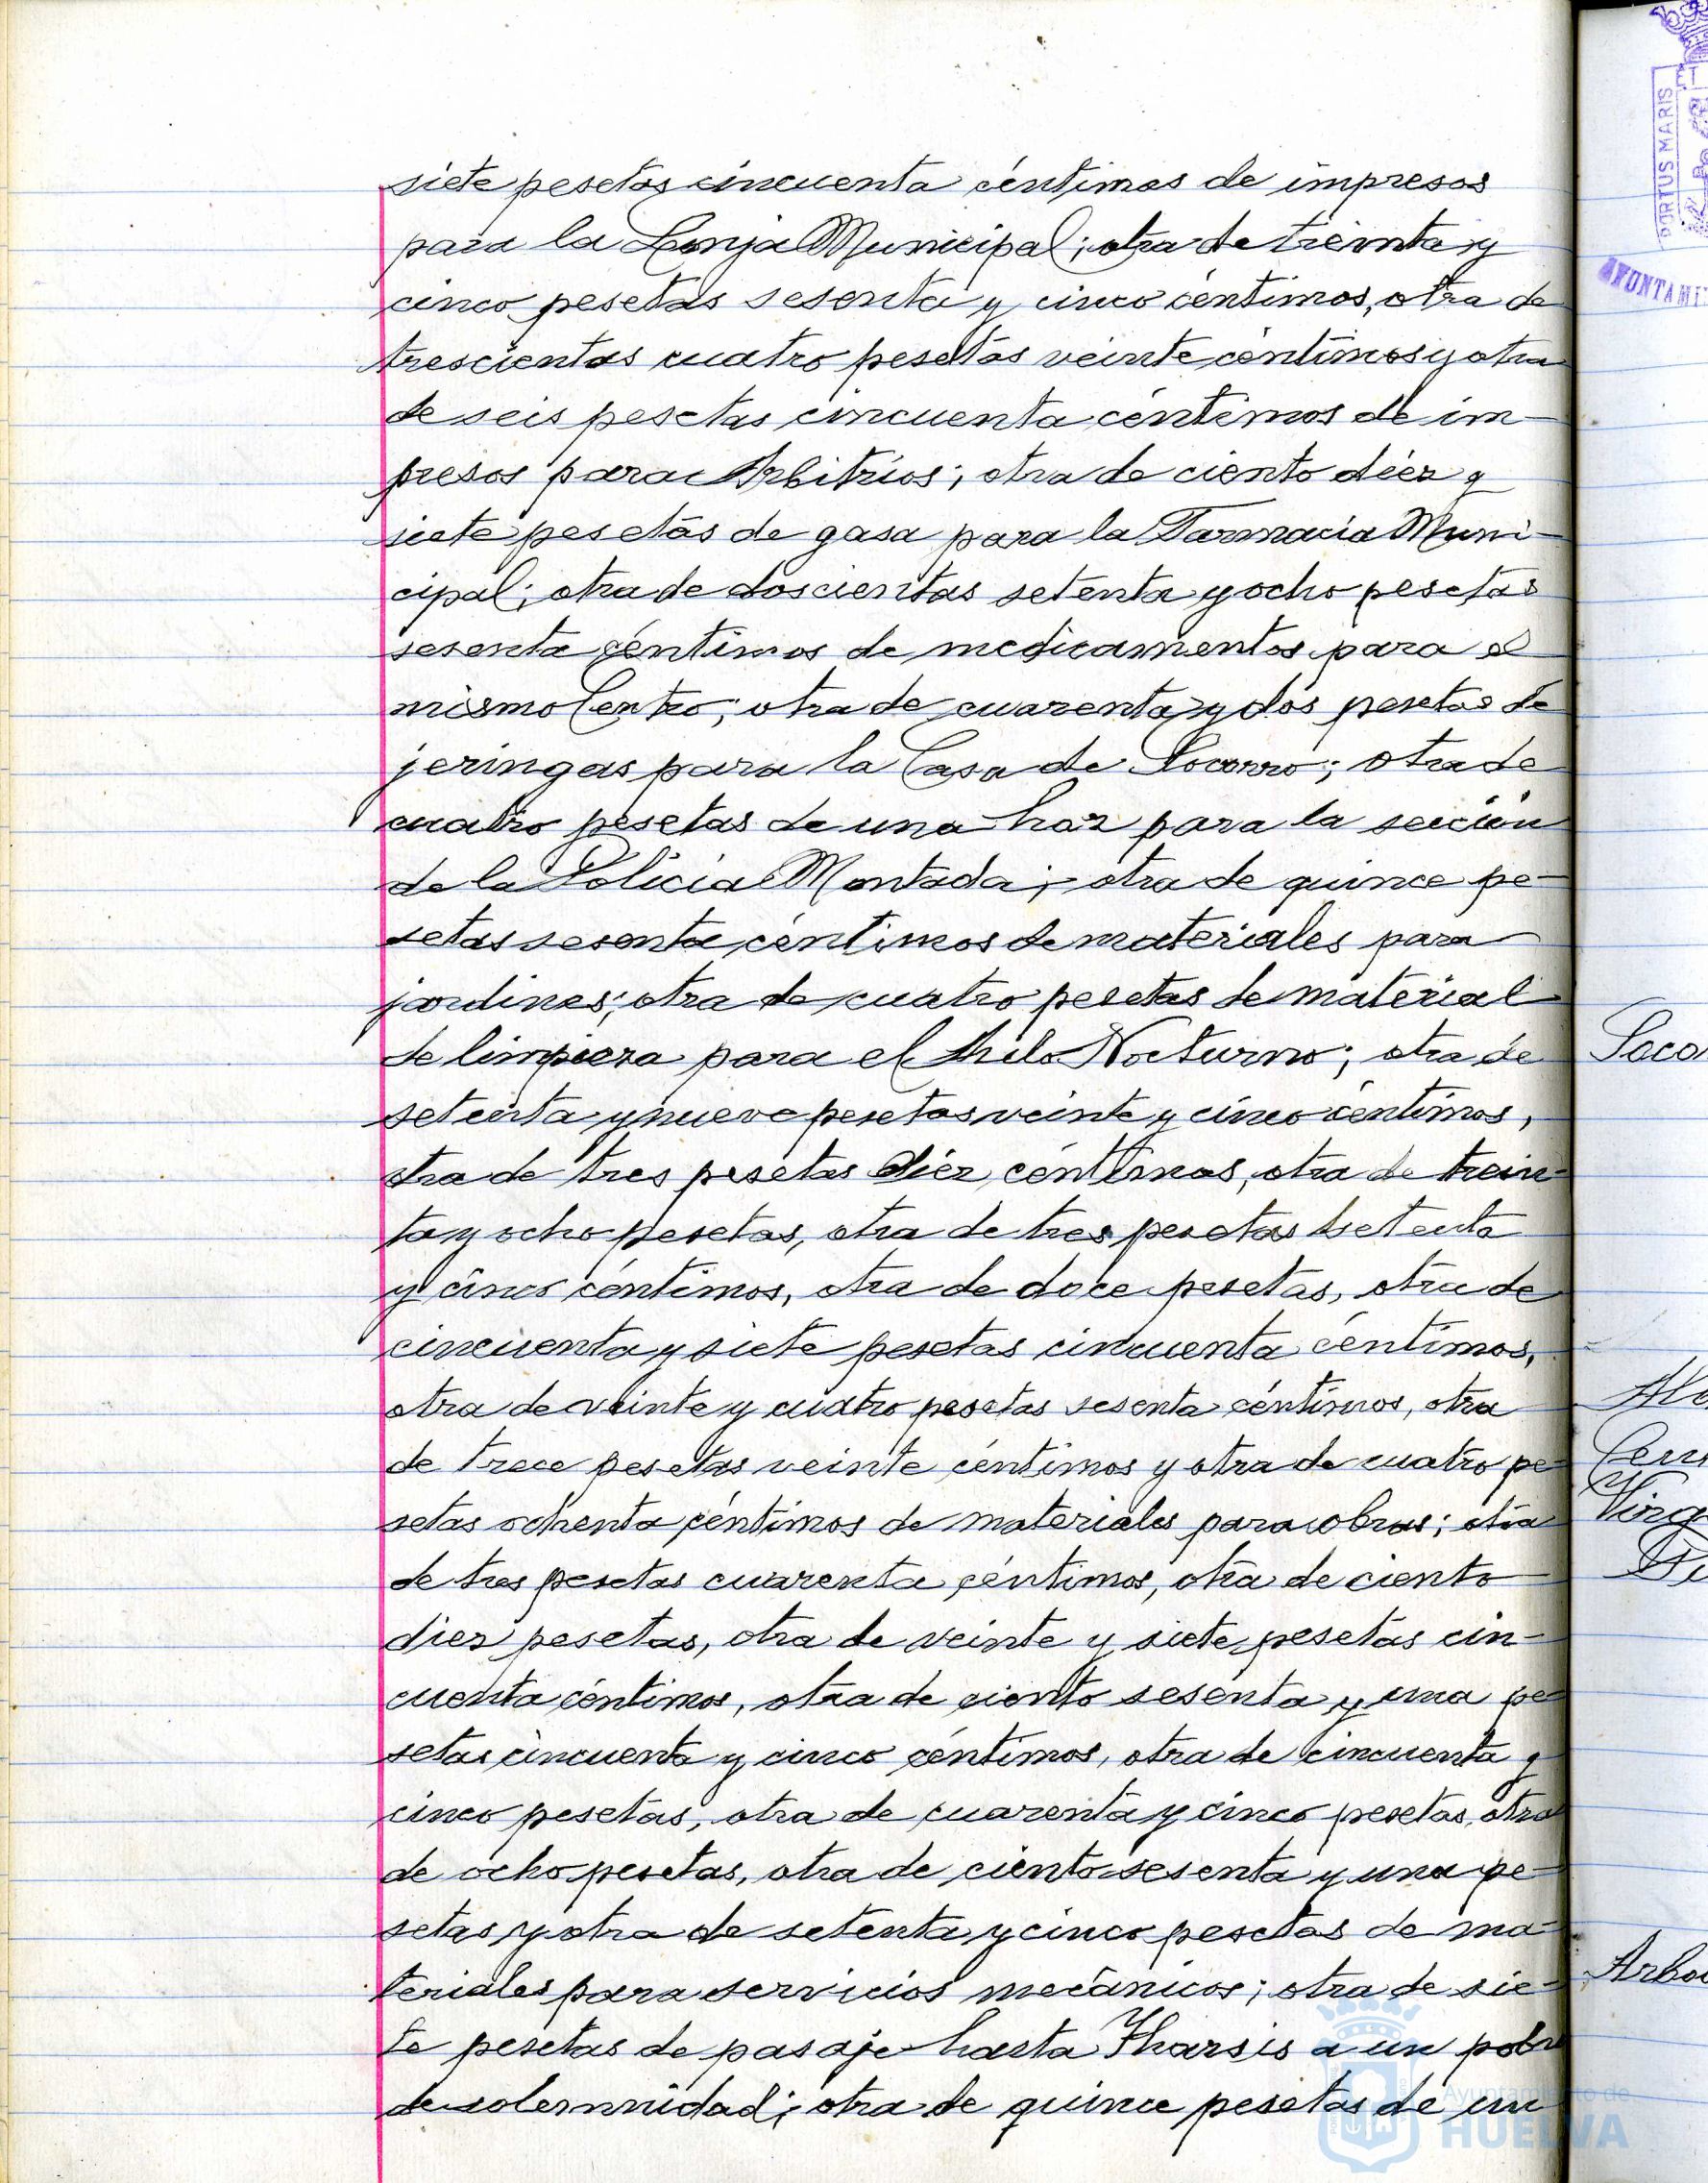 siete pesetas cincuenta céntimos de impresos
para la Lonja Municipal; otra de treinta y
cinco pesetas sesenta y cinco céntimos, otra de
trescientas cuatro pesetas veinte céntimos y otra
de seis pesetas cincuenta céntimos de im-
presos para Arbitrios; otra de ciento diez y
siete pesetas de gasa para la Farmacia Muni-
cipal; otra de doscientas setenta y ocho pesetas
sesenta céntimos de medicamentos para el
mismo Centro; otra de cuarenta y dos pesetas de
jeringas para la Casa de Socorro; otra de
cuatro pesetas de una hoz para la sección
de la Policía Montada; otra de quince pe-
setas sesenta céntimos de materiales para
jardines; otra de cuatro pesetas de material
de limpieza para el Asilo Nocturno; otra de
setenta y nueve pesetas veinte y cinco céntimos,
otra de tres pesetas diez céntimos, otra de trein-
ta y ocho pesetas, otra de tres pesetas setenta
y cinco céntimos, otra de doce pesetas, otra de
cincuenta y siete pesetas cincuenta céntimos,
otra de veinte y cuatro pesetas sesenta céntimos, otra
de trece pesetas veinte céntimos y otra de cuatro pe-
setas ochenta céntimos de materiales para obras; otra
de tres pesetas cuarenta céntimos, otra de ciento
diez pesetas, otra de veinte y siete pesetas cin-
cuenta céntimos, otra de ciento sesenta y una pe-
setas cincuenta y cinco céntimos, otra de cincuenta y
cinco pesetas, otra de cuarenta y cinco pesetas, otra
de ocho pesetas, otra de ciento sesenta y una pe-
setas y otra de setenta y cinco pesetas de ma-
teriales para servicios mecánicos; otra de sie-
te pesetas de pasaje hasta Tharsis a un pobre
de solemnidad; otra de quince pesetas de un
PORTUS MARIS ET
AYUNTAMI
Soco
Cem
y
Virg
Arbo
Ayuntamiento de
HUELVA